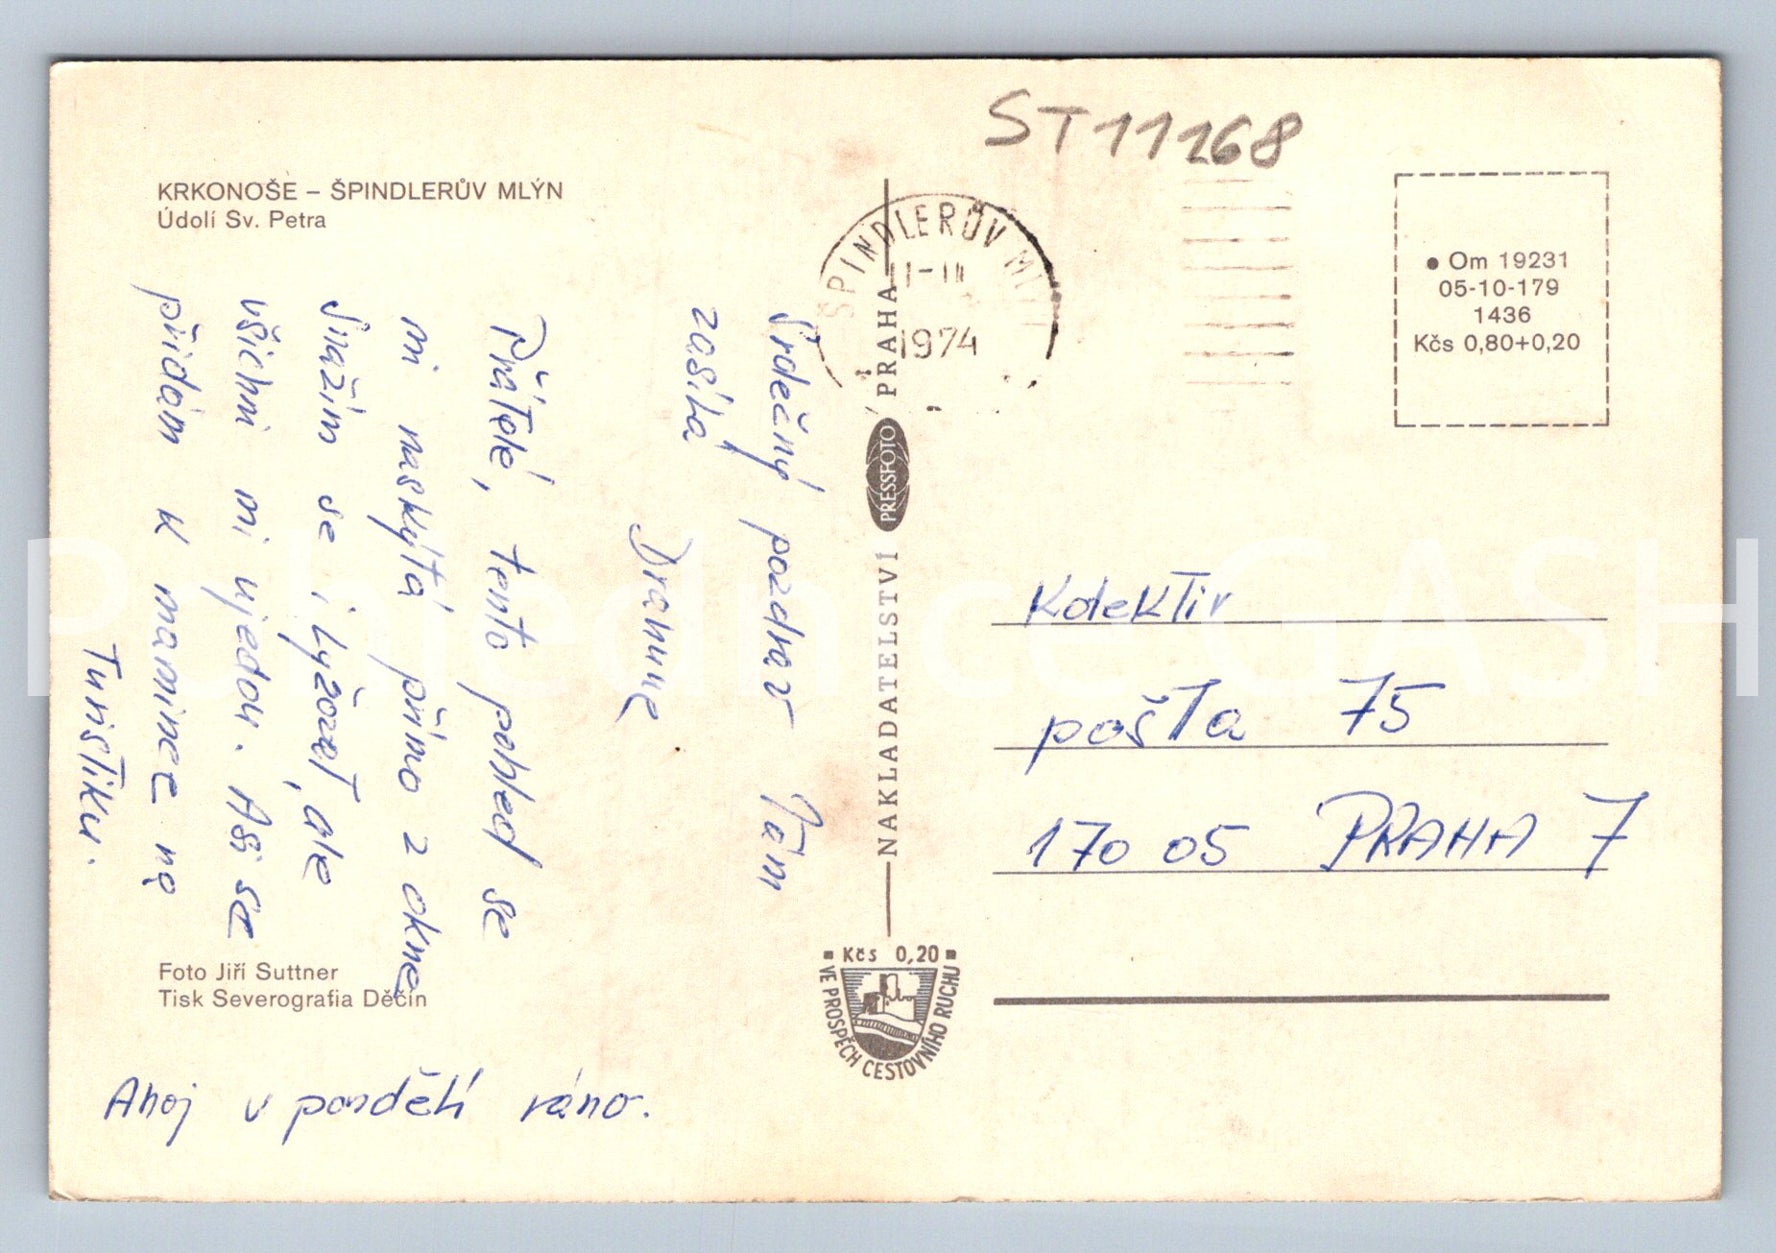 ST11168
KRKONOŠE – ŠPINDLERŮV MLÝN
Údolí Sv. Petra
Srdečný pozdrav Vám
zasílá
Drahuše
Přátelé, tento pohled se
mi naskýtá přímo z okna
Snažím se i lyžovat, ale
všichni mi ujedou. Asi se
přidám k mamince na
Turistiku.
Foto Jiří Suttner
Tisk Severografia Děčín
Ahoj v pondělí ráno.
ŠPINDLERŮV ML
1974
NAKLADATELSTVÍ PRESSFOTO PRAHA
Kčs 0,20
VE PROSPĚCH CESTOVNÍHO RUCHU
● Om 19231
05-10-179
1436
Kčs 0,80+0,20
Kolektiv
pošta 75
170 05 PRAHA 7
Pohlednice GASH